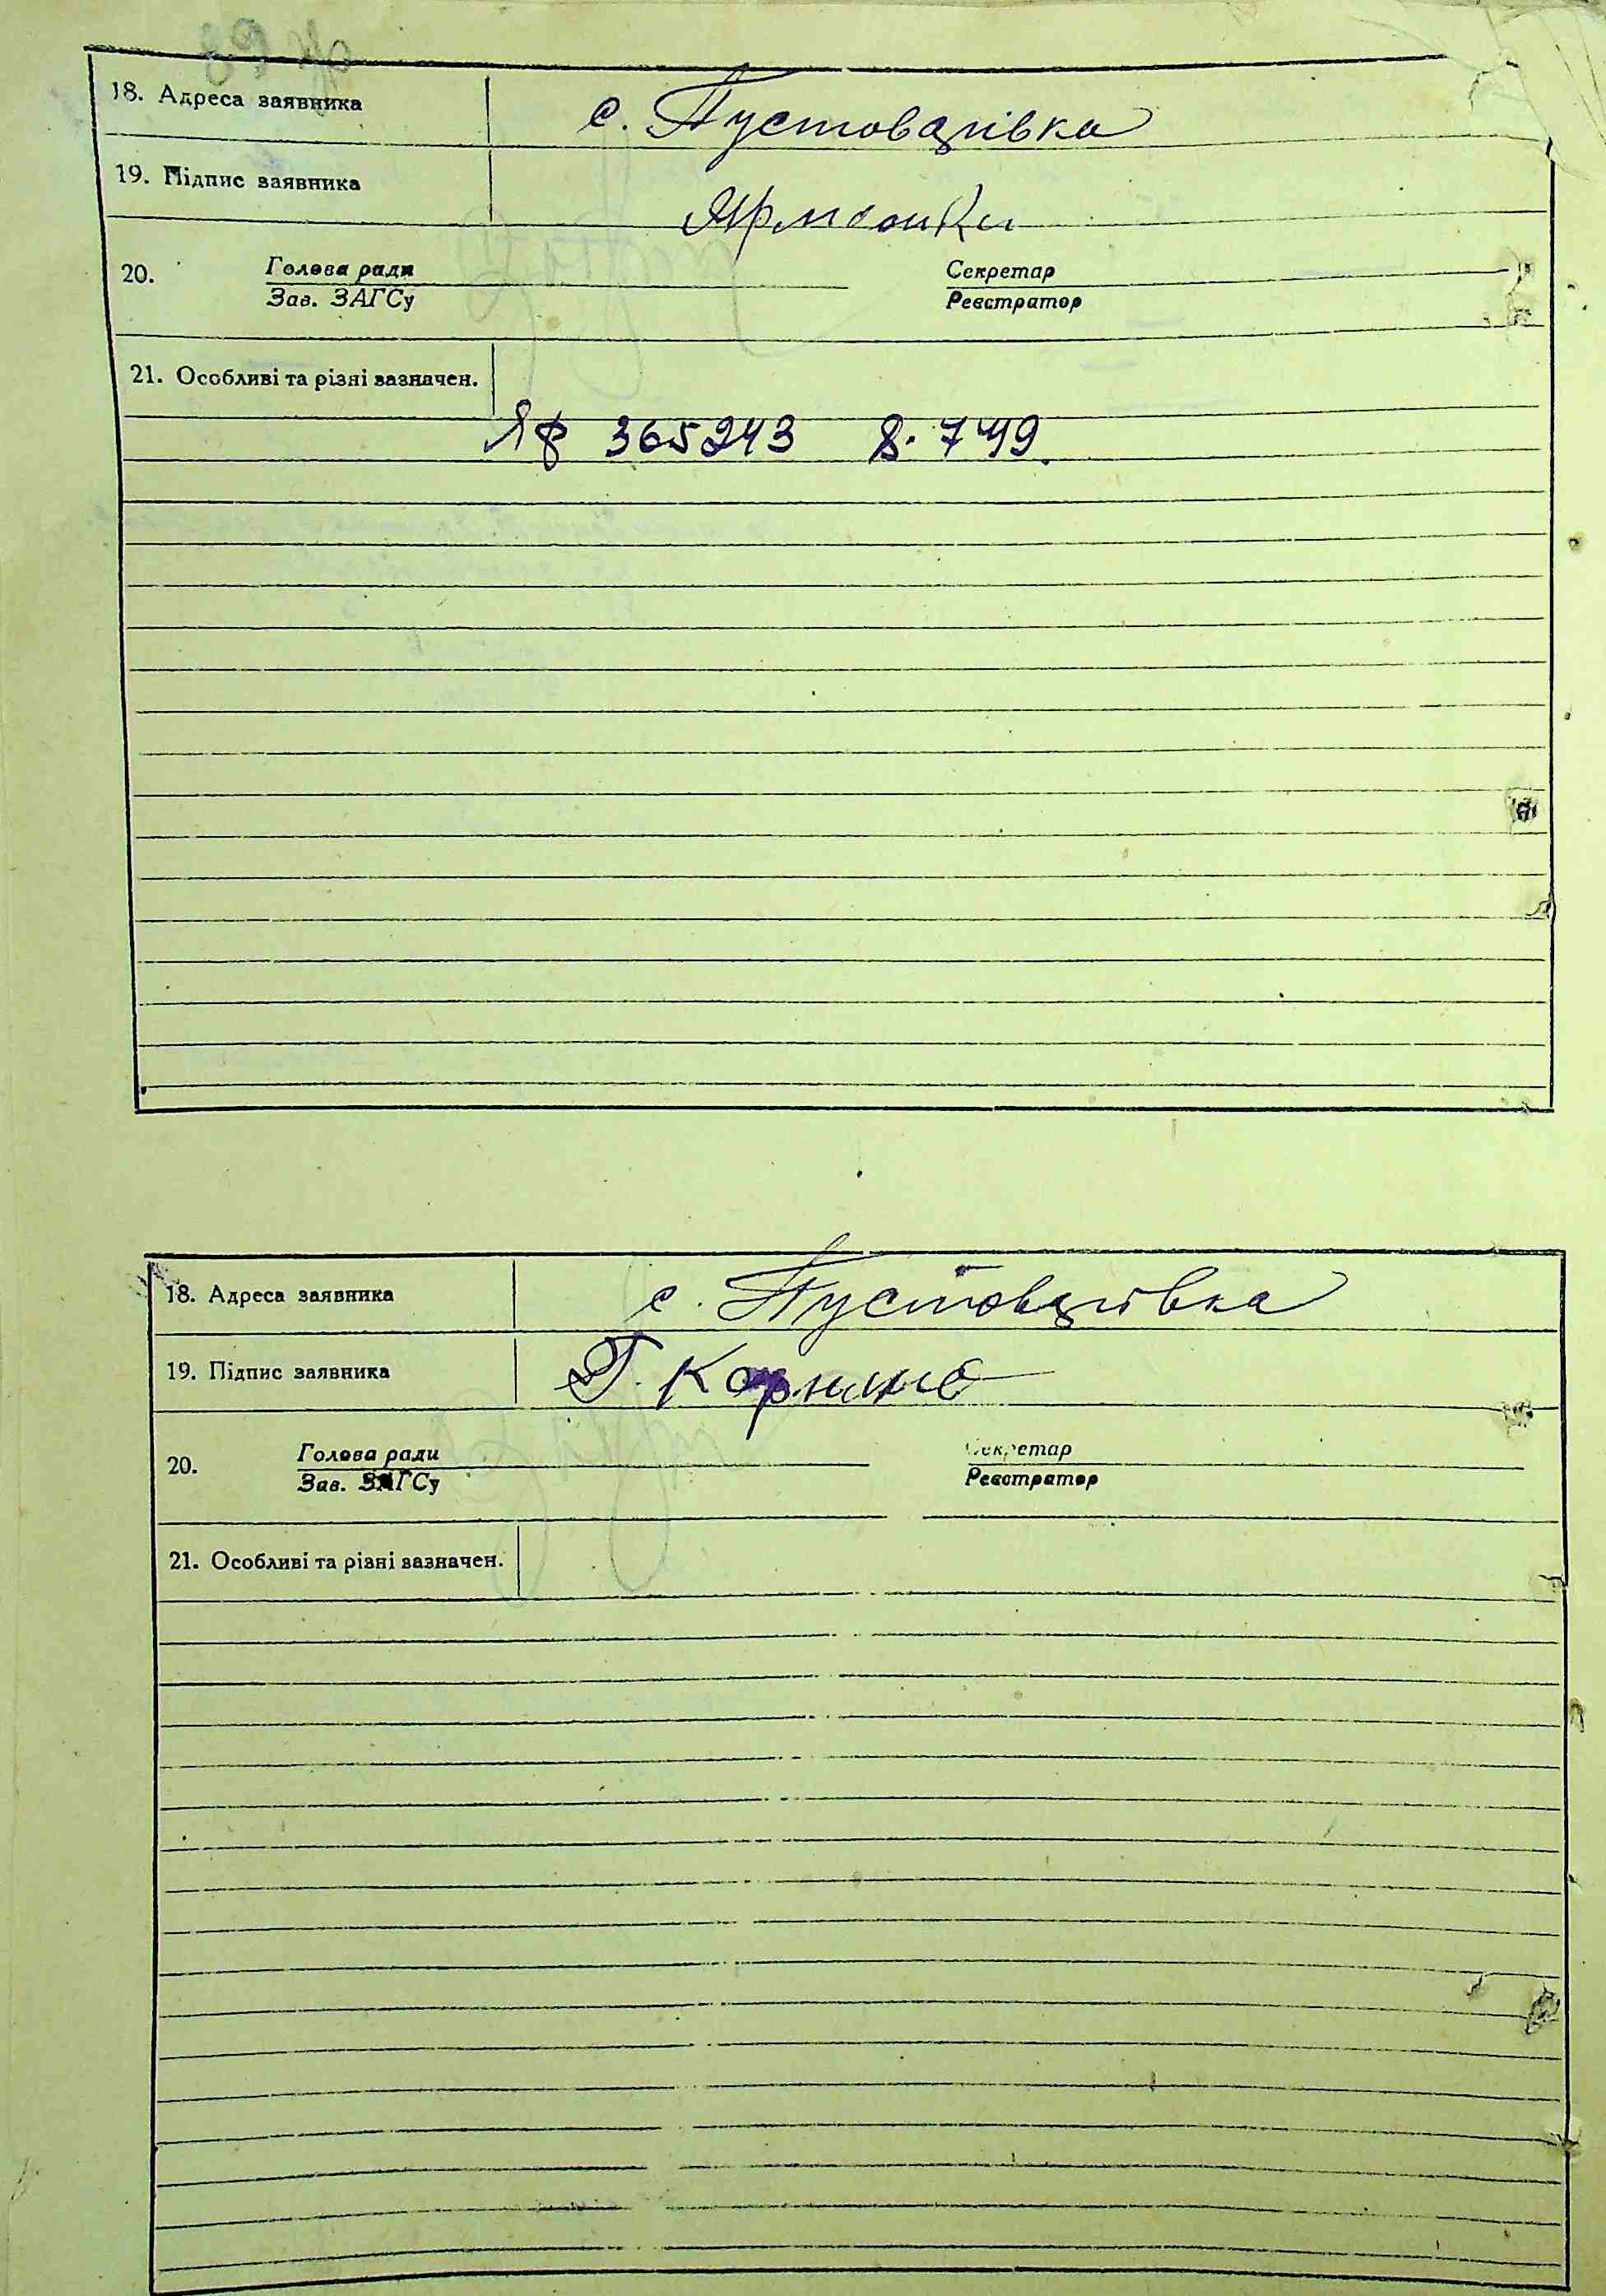 18. Адреса заявника с. Пустоварівка
19. Підпис заявника
20. Голова ради Секретар
Зав. ЗАГСу Реєстратор
21. Особливі та різні зазначен.
ЯФ 365243 8.749.
18. Адреса заявника с. Пустоварівка
19. Підпис заявника Г. Корниш
20. Голова ради Секретар
Зав. ЗАГСу Реєстратор
21. Особливі та різні зазначен.